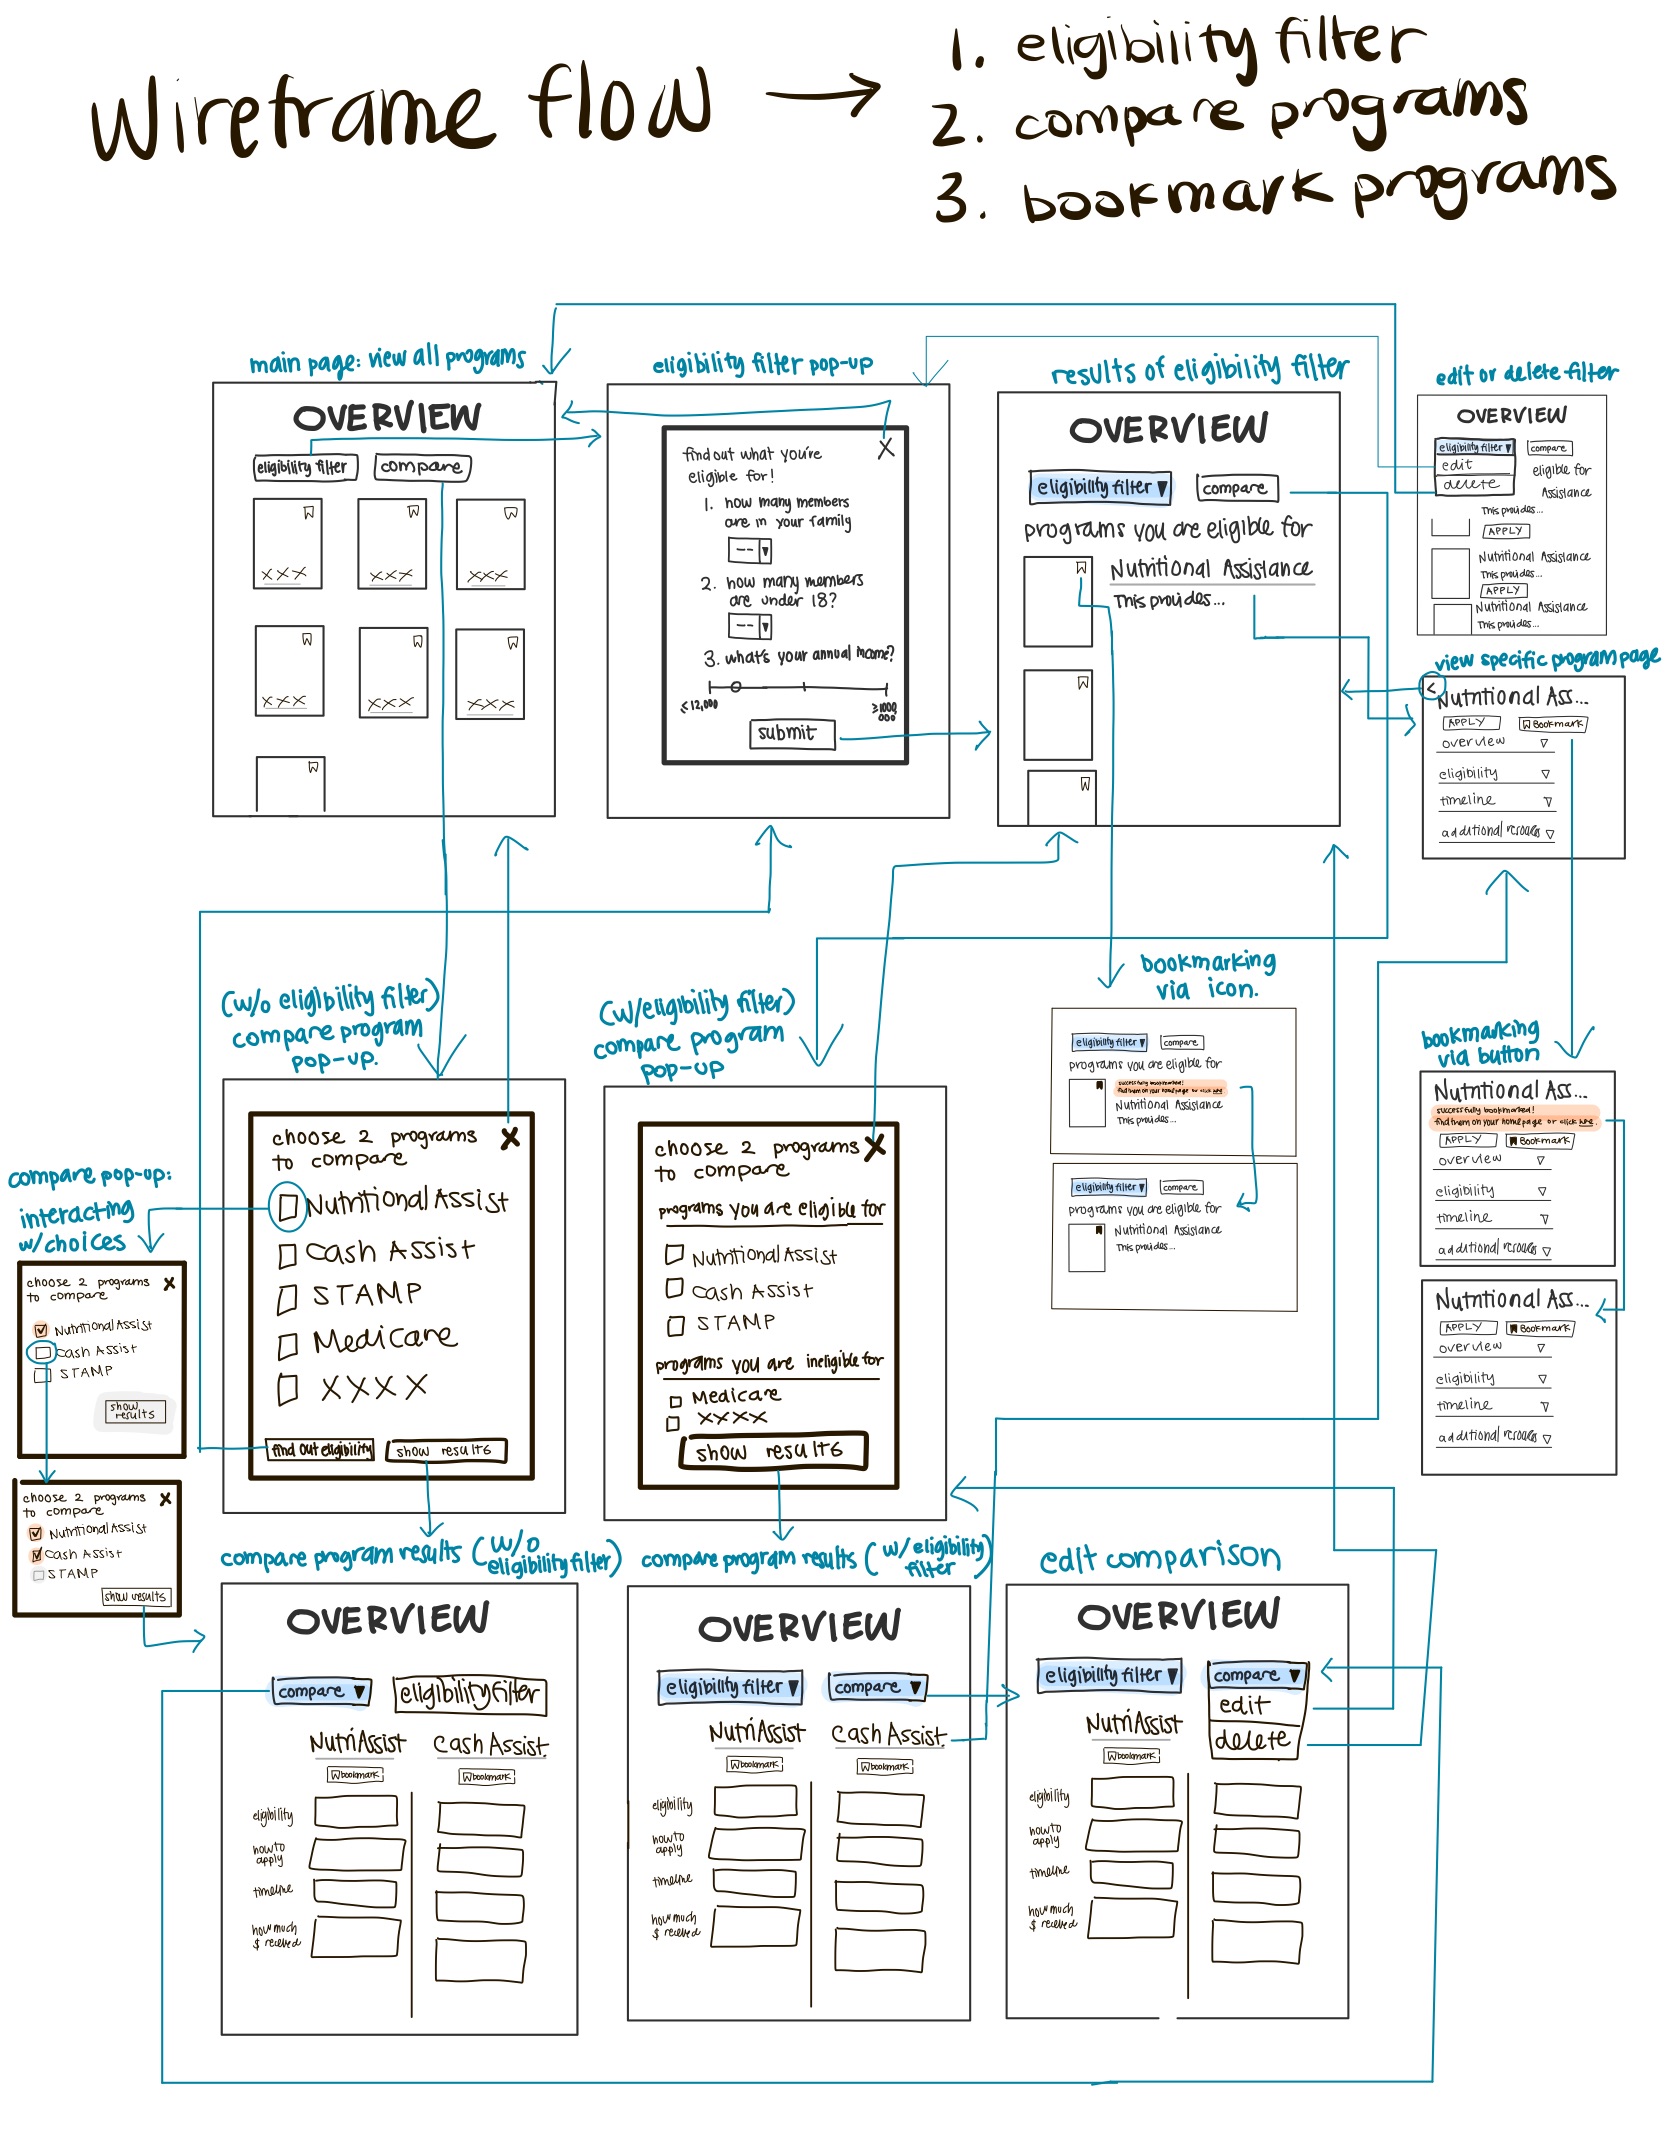 Wireframe flow → 1. eligibility filter
2. compare programs
3. bookmark programs
main page: view all programs
OVERVIEW
eligibility filter
compare
XXX
XXX
XXX
XXX
XXX
XXX
eligibility filter pop-up
find out what you're
eligible for!
X
1. how many members
are in your family
--
2. how many members
are under 18?
--
3. what's your annual income?
≤ 12,000
≥ 1000
000
submit
results of eligibility filter
OVERVIEW
eligibility filter ▼
compare
programs you are eligible for
Nutritional Assistance
This provides...
edit or delete filter
OVERVIEW
eligibility filter ▼
compare
edit
delete
eligible for
Assistance
This provides...
APPLY
Nutritional Assistance
This provides...
APPLY
Nutritional Assistance
This provides...
view specific program page
<
Nutritional Ass...
APPLY
Bookmark
overview
eligibility
timeline
(w/o eligibility filter)
compare program
pop-up.
choose 2 programs
to compare
X
Nutritional Assist
Cash Assist
STAMP
Medicare
XXXX
find out eligibility
show results
(w/eligibility filter)
compare program
pop-up
choose 2 programs
to compare
X
programs you are eligible for
Nutritional Assist
Cash Assist
STAMP
programs you are ineligible for
Medicare
XXXX
show results
bookmarking
via icon.
eligibility filter ▼
compare
programs you are eligible for
successfully bookmarked!
find them on your homepage or click here
Nutritional Assistance
This provides...
eligibility filter ▼
compare
programs you are eligible for
Nutritional Assistance
This provides...
bookmarking
via button
Nutritional Ass...
successfully bookmarked!
find them on your homepage or click here.
APPLY
Bookmark
overview
eligibility
timeline
Nutritional Ass...
APPLY
Bookmark
overview
eligibility
timeline
compare pop-up:
interacting
w/choices
choose 2 programs
to compare
X
Nutritional Assist
Cash Assist
STAMP
show
results
choose 2 programs
to compare
X
Nutritional Assist
Cash Assist
STAMP
show results
compare program results (w/o
eligibility filter)
OVERVIEW
compare ▼
eligibility filter
Nutri Assist
Cash Assist.
bookmark
bookmark
eligibility
how to
apply
timeline
how much
$ received
compare program results (w/eligibility)
filter
OVERVIEW
eligibility filter ▼
compare ▼
Nutri Assist
Cash Assist.
bookmark
bookmark
eligibility
how to
apply
timeline
how much
$ received
edit comparison
OVERVIEW
eligibility filter ▼
compare ▼
edit
delete
Nutri Assist
bookmark
eligibility
how to
apply
timeline
how much
$ received